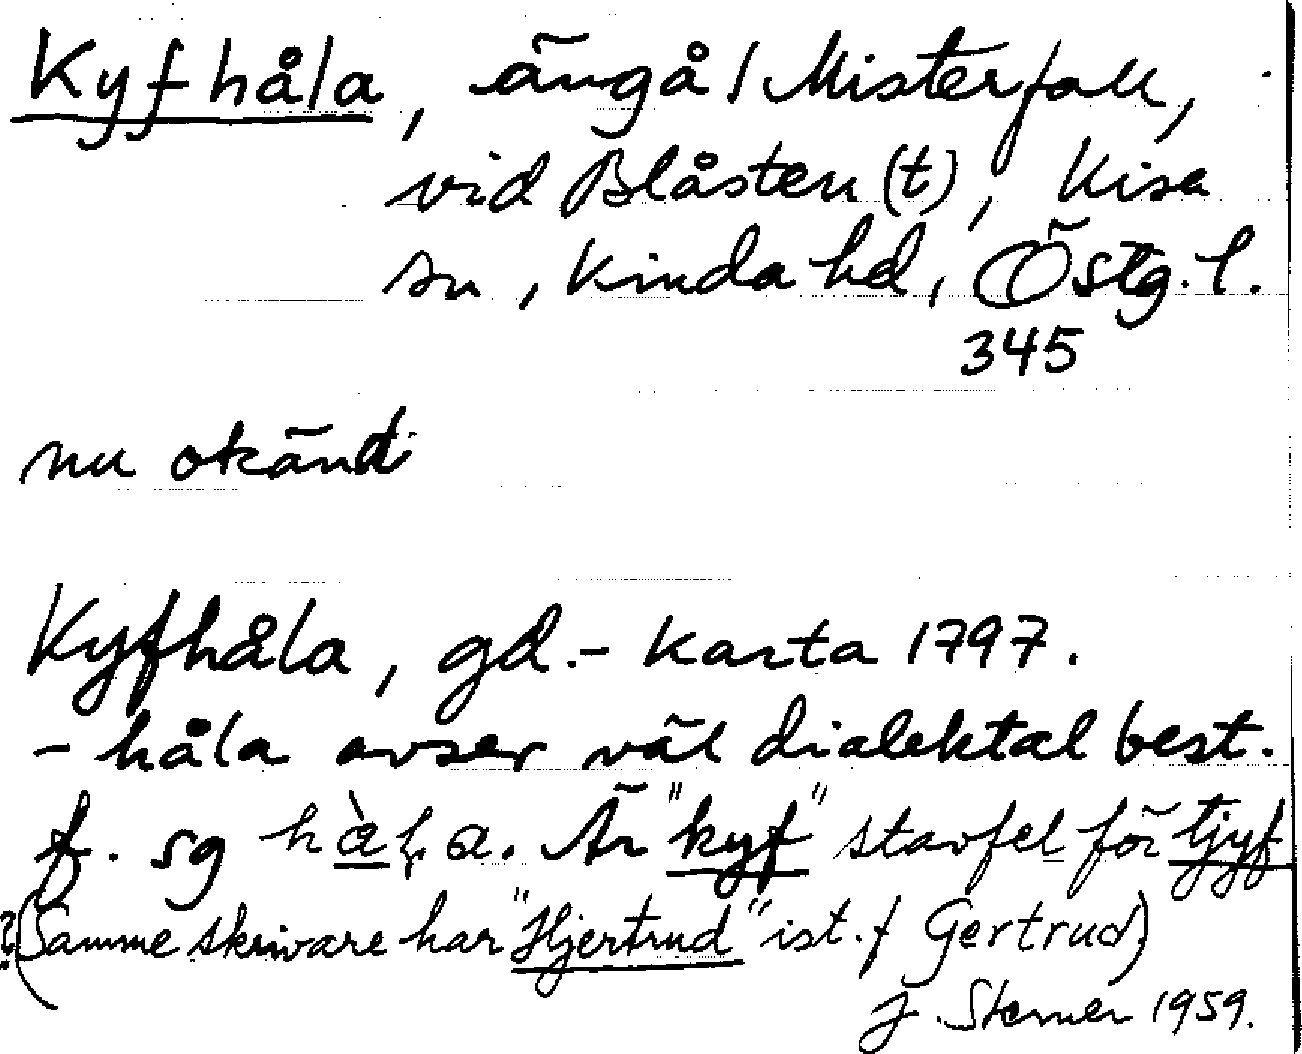 Kyfhåla, äng å / Misterfall,
vid Blåsten (t), Kisa
sn, Kinda hd, Östg. l.
345
nu okänd
Kyfhåla, gd. - Karta 1797.
- håla avser väl dialektal best.
f. sg hàḷa. Är "kyf" stavfel för tjyf
? (Samme skrivare har "Hjertrud" ist. f Gertrud)
J. Sterner 1959.